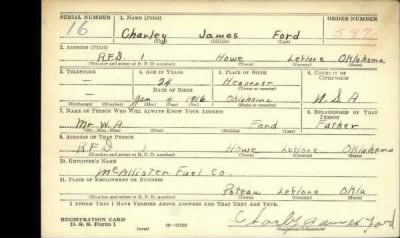 SERIAL NUMBER 1. NAME (Print) ORDER NUMBER
16 Charley James Ford 597
(First) (Middle) (Last)
2. ADDRESS (Print)
RFD 1 Howe Leflore Oklahoma
(Number and street or R. F. D. number) (Town) (County) (State)
3. TELEPHONE 4. AGE IN YEARS 5. PLACE OF BIRTH 6. COUNTRY OF CITIZENSHIP
— 24 Heavener
DATE OF BIRTH (Town or county)
— Jan 1916 Oklahoma U.S.A
(Exchange) (Number) (Mo.) (Day) (Yr.) (State or country)
7. NAME OF PERSON WHO WILL ALWAYS KNOW YOUR ADDRESS 8. RELATIONSHIP OF THAT PERSON
Mr. W.A. Ford Father
(Mr., Mrs., Miss) (First) (Middle) (Last)
9. ADDRESS OF THAT PERSON
RFD 1 Howe Leflore Oklahoma
(Number and street or R. F. D. number) (Town) (County) (State)
10. EMPLOYER'S NAME
McAllister Fuel Co.
11. PLACE OF EMPLOYMENT OR BUSINESS
Poteau Leflore Okla
(Number and street or R. F. D. number) (Town) (County) (State)
I AFFIRM THAT I HAVE VERIFIED ABOVE ANSWERS AND THAT THEY ARE TRUE.
REGISTRATION CARD
D. S. S. Form 1 (over) 16—17105 Charley James Ford